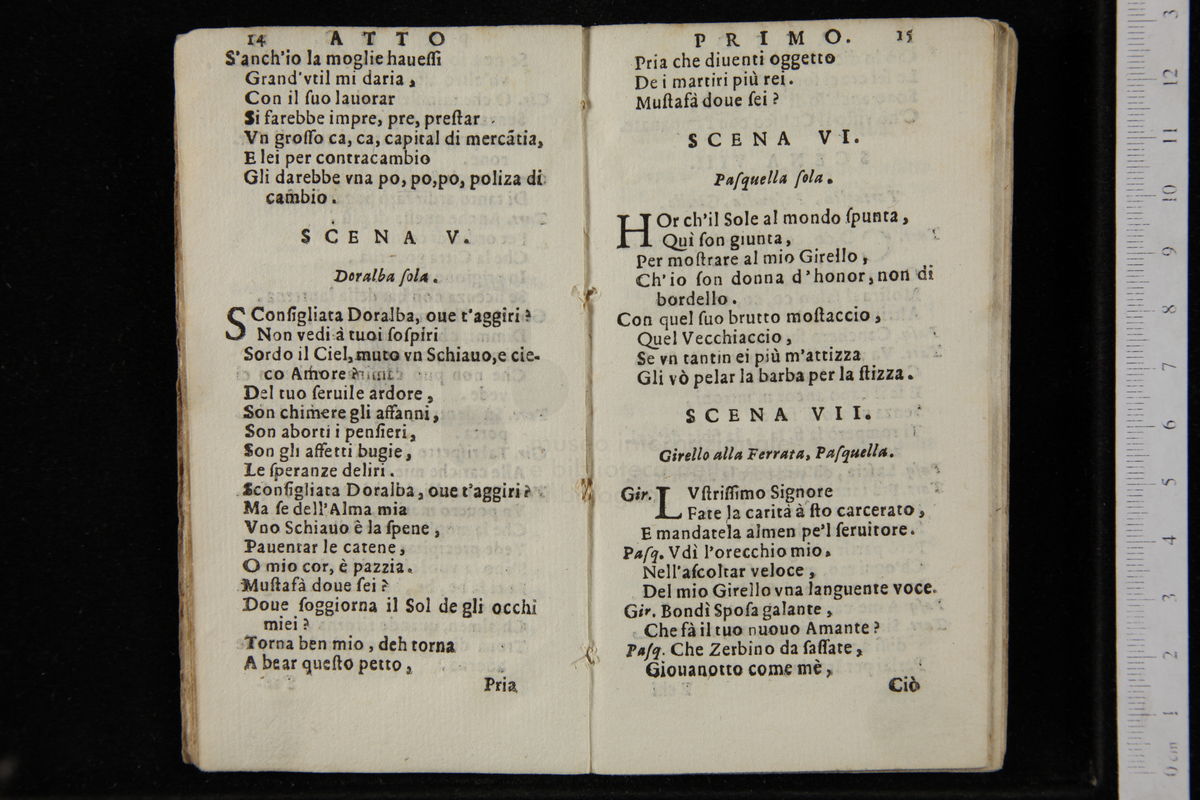 14 ATTO
S'anch'io la moglie haueſſi
Grand'vtil mi daria,
Con il ſuo lauorar
Si farebbe impre, pre, preſtar
Vn groſſo ca, ca, capital di mercãtia,
E lei per contracambio
Gli darebbe vna po, po, po, poliza di
cambio.
SCENA V.
Doralba ſola.
SConſigliata Doralba, oue t'aggiri?
Non vedi à tuoi ſoſpiri
Sordo il Ciel, muto vn Schiauo, e cie-
co Amore?
Del tuo ſeruile ardore,
Son chimere gli affanni,
Son aborti i penſieri,
Son gli affetti bugie,
Le ſperanze deliri.
Sconſigliata Doralba, oue t'aggiri?
Ma ſe dell'Alma mia
Vno Schiauo è la ſpene,
Pauentar le catene,
O mio cor, è pazzia.
Muſtafà doue ſei?
Doue ſoggiorna il Sol de gli occhi
miei?
Torna ben mio, deh torna
A bear queſto petto,
Pria
PRIMO. 15
Pria che diuenti oggetto
De i martiri più rei.
Muſtafà doue ſei?
SCENA VI.
Paſquella ſola.
HOr ch'il Sole al mondo ſpunta,
Quì ſon giunta,
Per moſtrare al mio Girello,
Ch'io ſon donna d'honor, non di
bordello.
Con quel ſuo brutto moſtaccio,
Quel Vecchiaccio,
Se vn tantin ei più m'attizza
Gli vò pelar la barba per la ſtizza.
SCENA VII.
Girello alla Ferrata, Paſquella.
Gir. LVſtriſſimo Signore
Fate la carità à ſto carcerato,
E mandatela almen pe'l ſeruitore.
Paſq. Vdì l'orecchio mio,
Nell'aſcoltar veloce,
Del mio Girello vna languente voce.
Gir. Bondì Spoſa galante,
Che fà il tuo nuouo Amante?
Paſq. Che Zerbino da ſaſſate,
Giouanotto come mè,
Ciò
3
12
11
10
9
8
7
6
5
4
3
2
1
0 cm